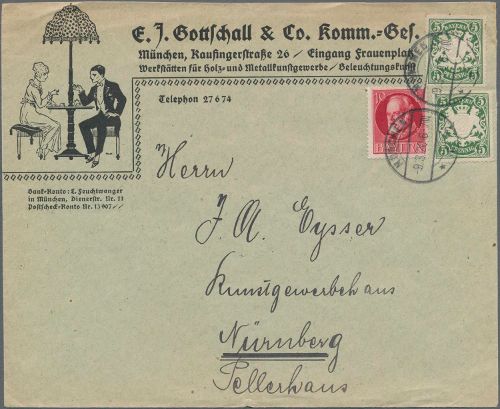 E. J. Gottschall & Co. Komm.-Ges.
München, Kaufingerstraße 26 / Eingang Frauenplatz
Werkstätten für Holz- und Metallkunstgewerbe / Beleuchtungskunst
Telephon 27674
Bank-Konto: E. Feuchtwanger
in München, Dienerstr. Nr. 11
Postscheck-Konto Nr. 13907
5 BAYERN 5
PFENNIG
10
BAYERN
5 BAYERN 5
PFENNIG
MÜNCHEN
Herrn
J. A. Eysser
Kunstgewerbehaus
Nürnberg
Pellerhaus